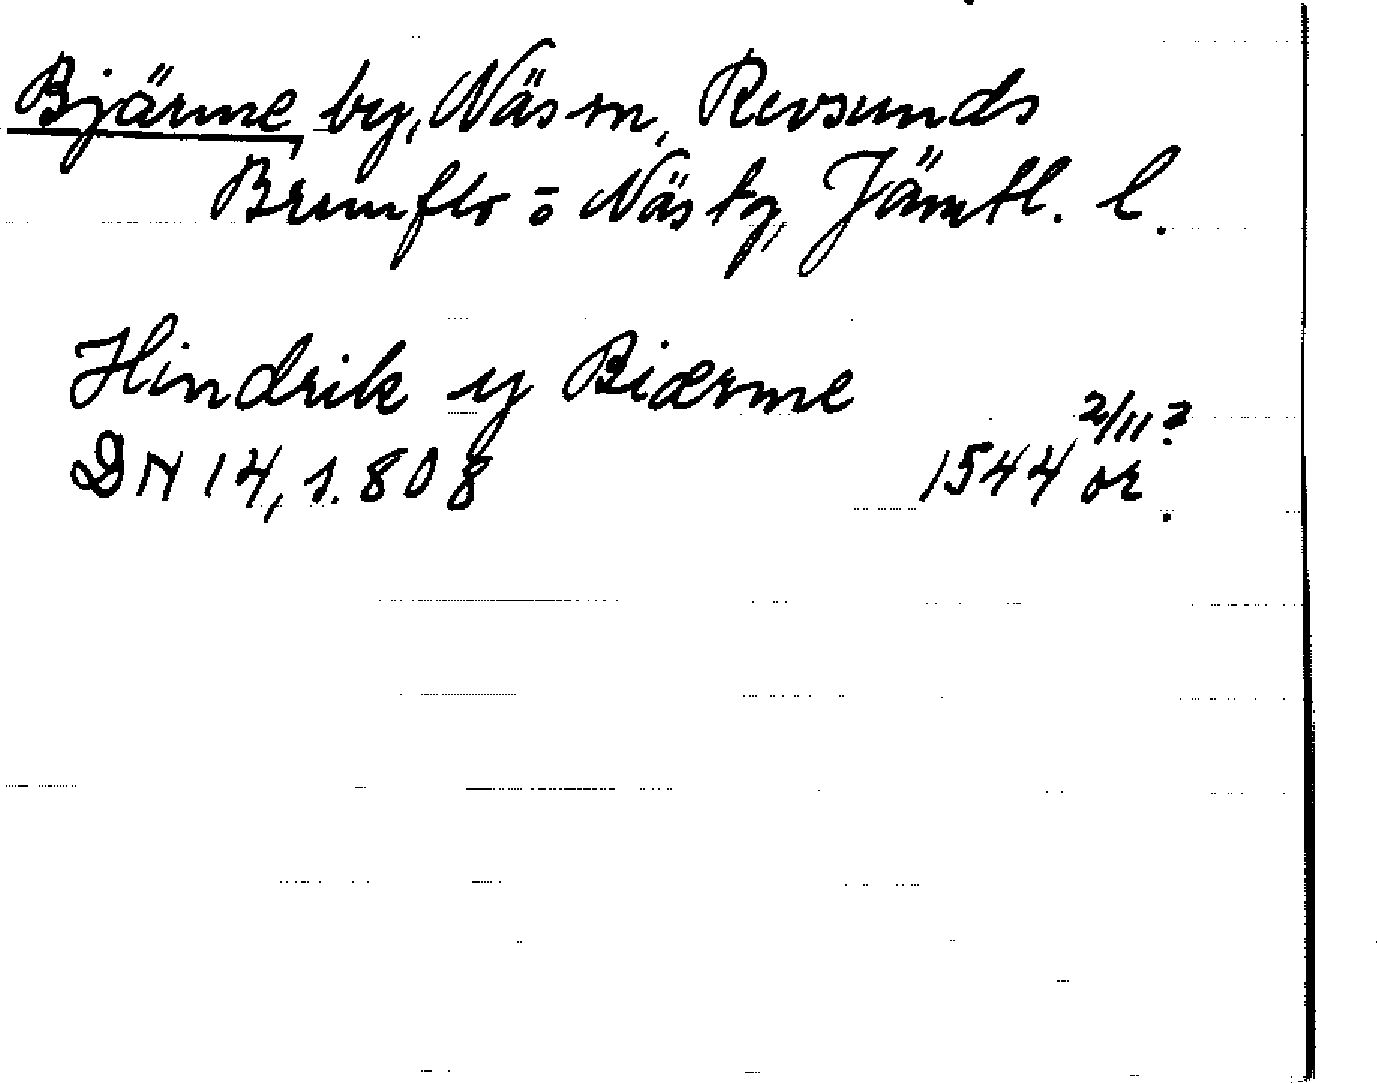 Bjärme, by, Näs sn, Revsunds
Brunflo o Näs tg, Jämtl. l.
Hindrik y Biærme
DN 14, s. 808 1544 2/11 ? or.